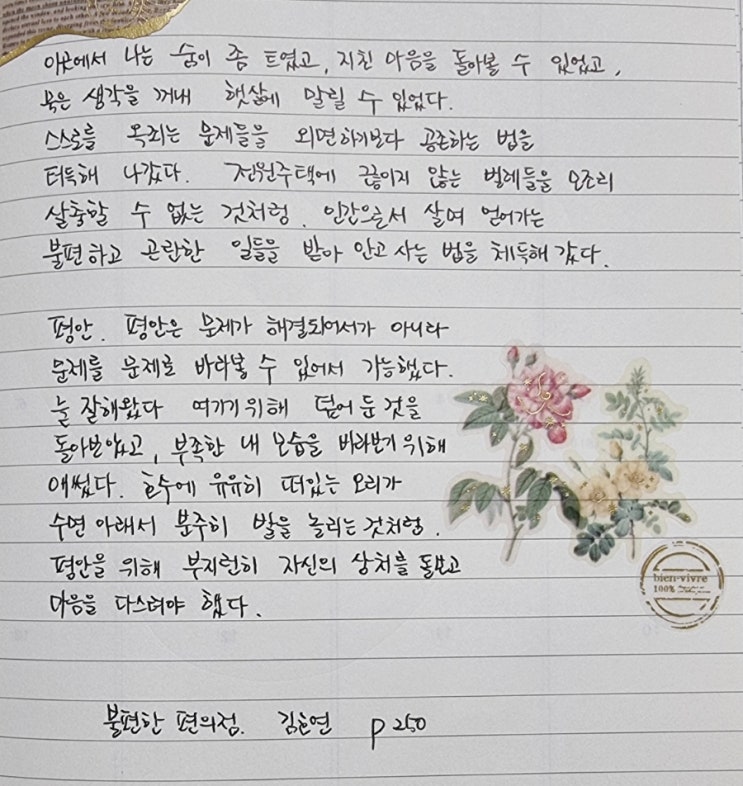 이곳에서 나는 숨이 좀 트였고, 지친 마음을 돌아볼 수 있었고,
묵은 생각을 꺼내 햇살에 말릴 수 있었다.
스스로를 옥죄는 문제들을 외면하기보다 공존하는 법을
터득해 나갔다. 전원주택에 끊이지 않는 벌레들을 모조리
살충할 수 없는 것처럼. 인간으로서 살며 얻어가는
불편하고 곤란한 일들을 받아 안고 사는 법을 체득해 갔다.
평안. 평안은 문제가 해결되어서가 아니라
문제를 문제로 바라볼 수 있어서 가능했다.
늘 잘해왔다 여기기 위해 덮어 둔 것을
돌아보았고, 부족한 내 모습을 바라보기 위해
애썼다. 호수에 유유히 떠있는 오리가
수면 아래서 분주히 발을 놀리는 것처럼.
평안을 위해 부지런히 자신의 상처를 돌보고
마음을 다스려야 했다.
bien-vivre
100%
불편한 편의점. 김호연 p250